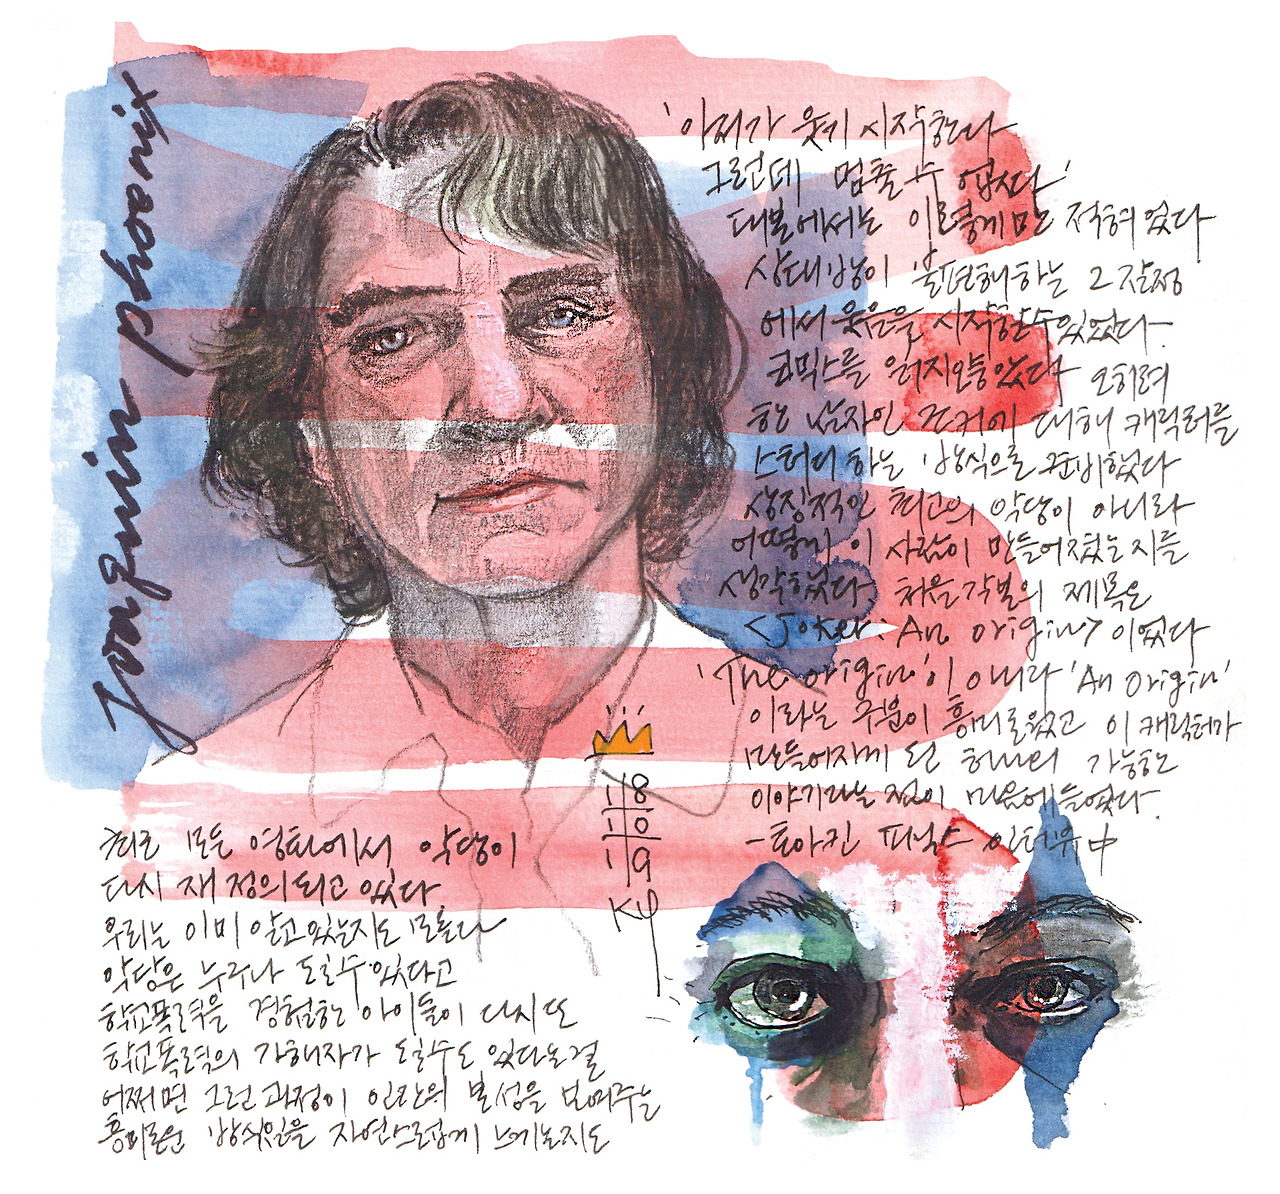 Joaquin phoenix
'아서가 웃기 시작한다
그런데 멈출 수 없다'
대본에서는 이렇게만 적혀 있었다
상대방이 불편해하는 그 감정
에서 웃음을 시작할 수 있었다.
코믹스를 읽지 않았다 오히려
한 남자인 조커에 대해 캐릭터를
스터디 하는 방식으로 준비했다
상징적인 최고의 악당이 아니라
어떻게 이 사람이 만들어졌는지를
생각했다. 처음 각본의 제목은
<Joker: An origin> 이었다
'The origin'이 아니라 'An Origin'
이라는 구분이 흥미로웠고 이 캐릭터가
만들어지게 된 하나의 가능한
이야기라는 점이 마음에 들었다.
-호아킨 피닉스 인터뷰 中
18
10
19
Ky
최근 모든 영화에서 악당이
다시 재정의 되고 있다.
우리는 이미 알고 있는지도 모른다
악당은 누구나 될 수 있다고
학교폭력을 경험한 아이들이 다시 또
학교폭력의 가해자가 될 수도 있다는 걸
어쩌면 그런 과정이 인간의 본성을 보여주는
흥미로운 방식임을 자연스럽게 느끼는지도